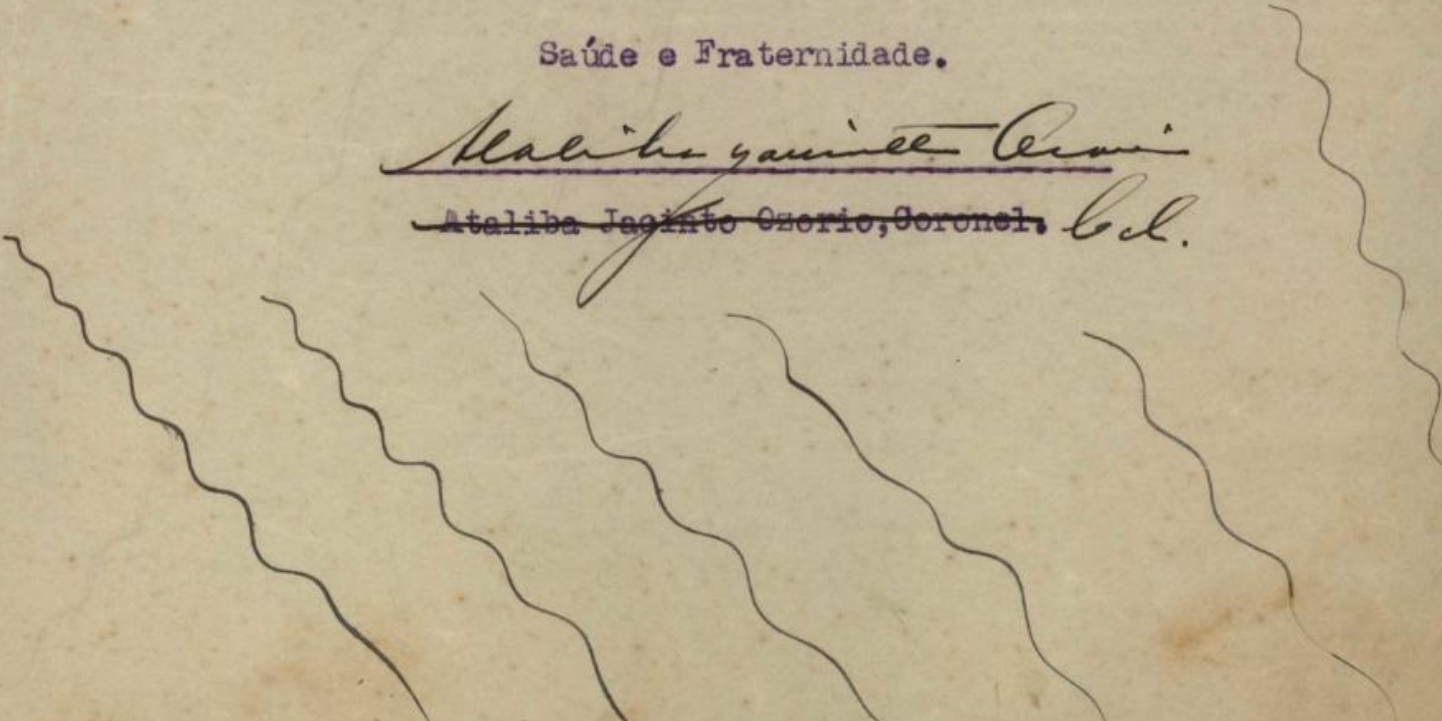 Saúde e Fraternidade.
Ataliba Jacinto Ozorio
Ataliba Jacinto Ozorio,Coronel. Cel.